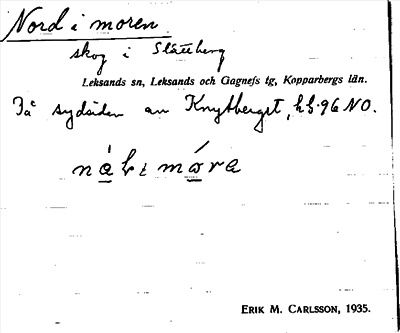 Nord i moren
skog i Slättberg
Leksands sn, Leksands och Gagnefs tg, Kopparbergs län.
På sydsidan av Knytberget, kbl 96 NO.
Erik M. Carlsson, 1935.